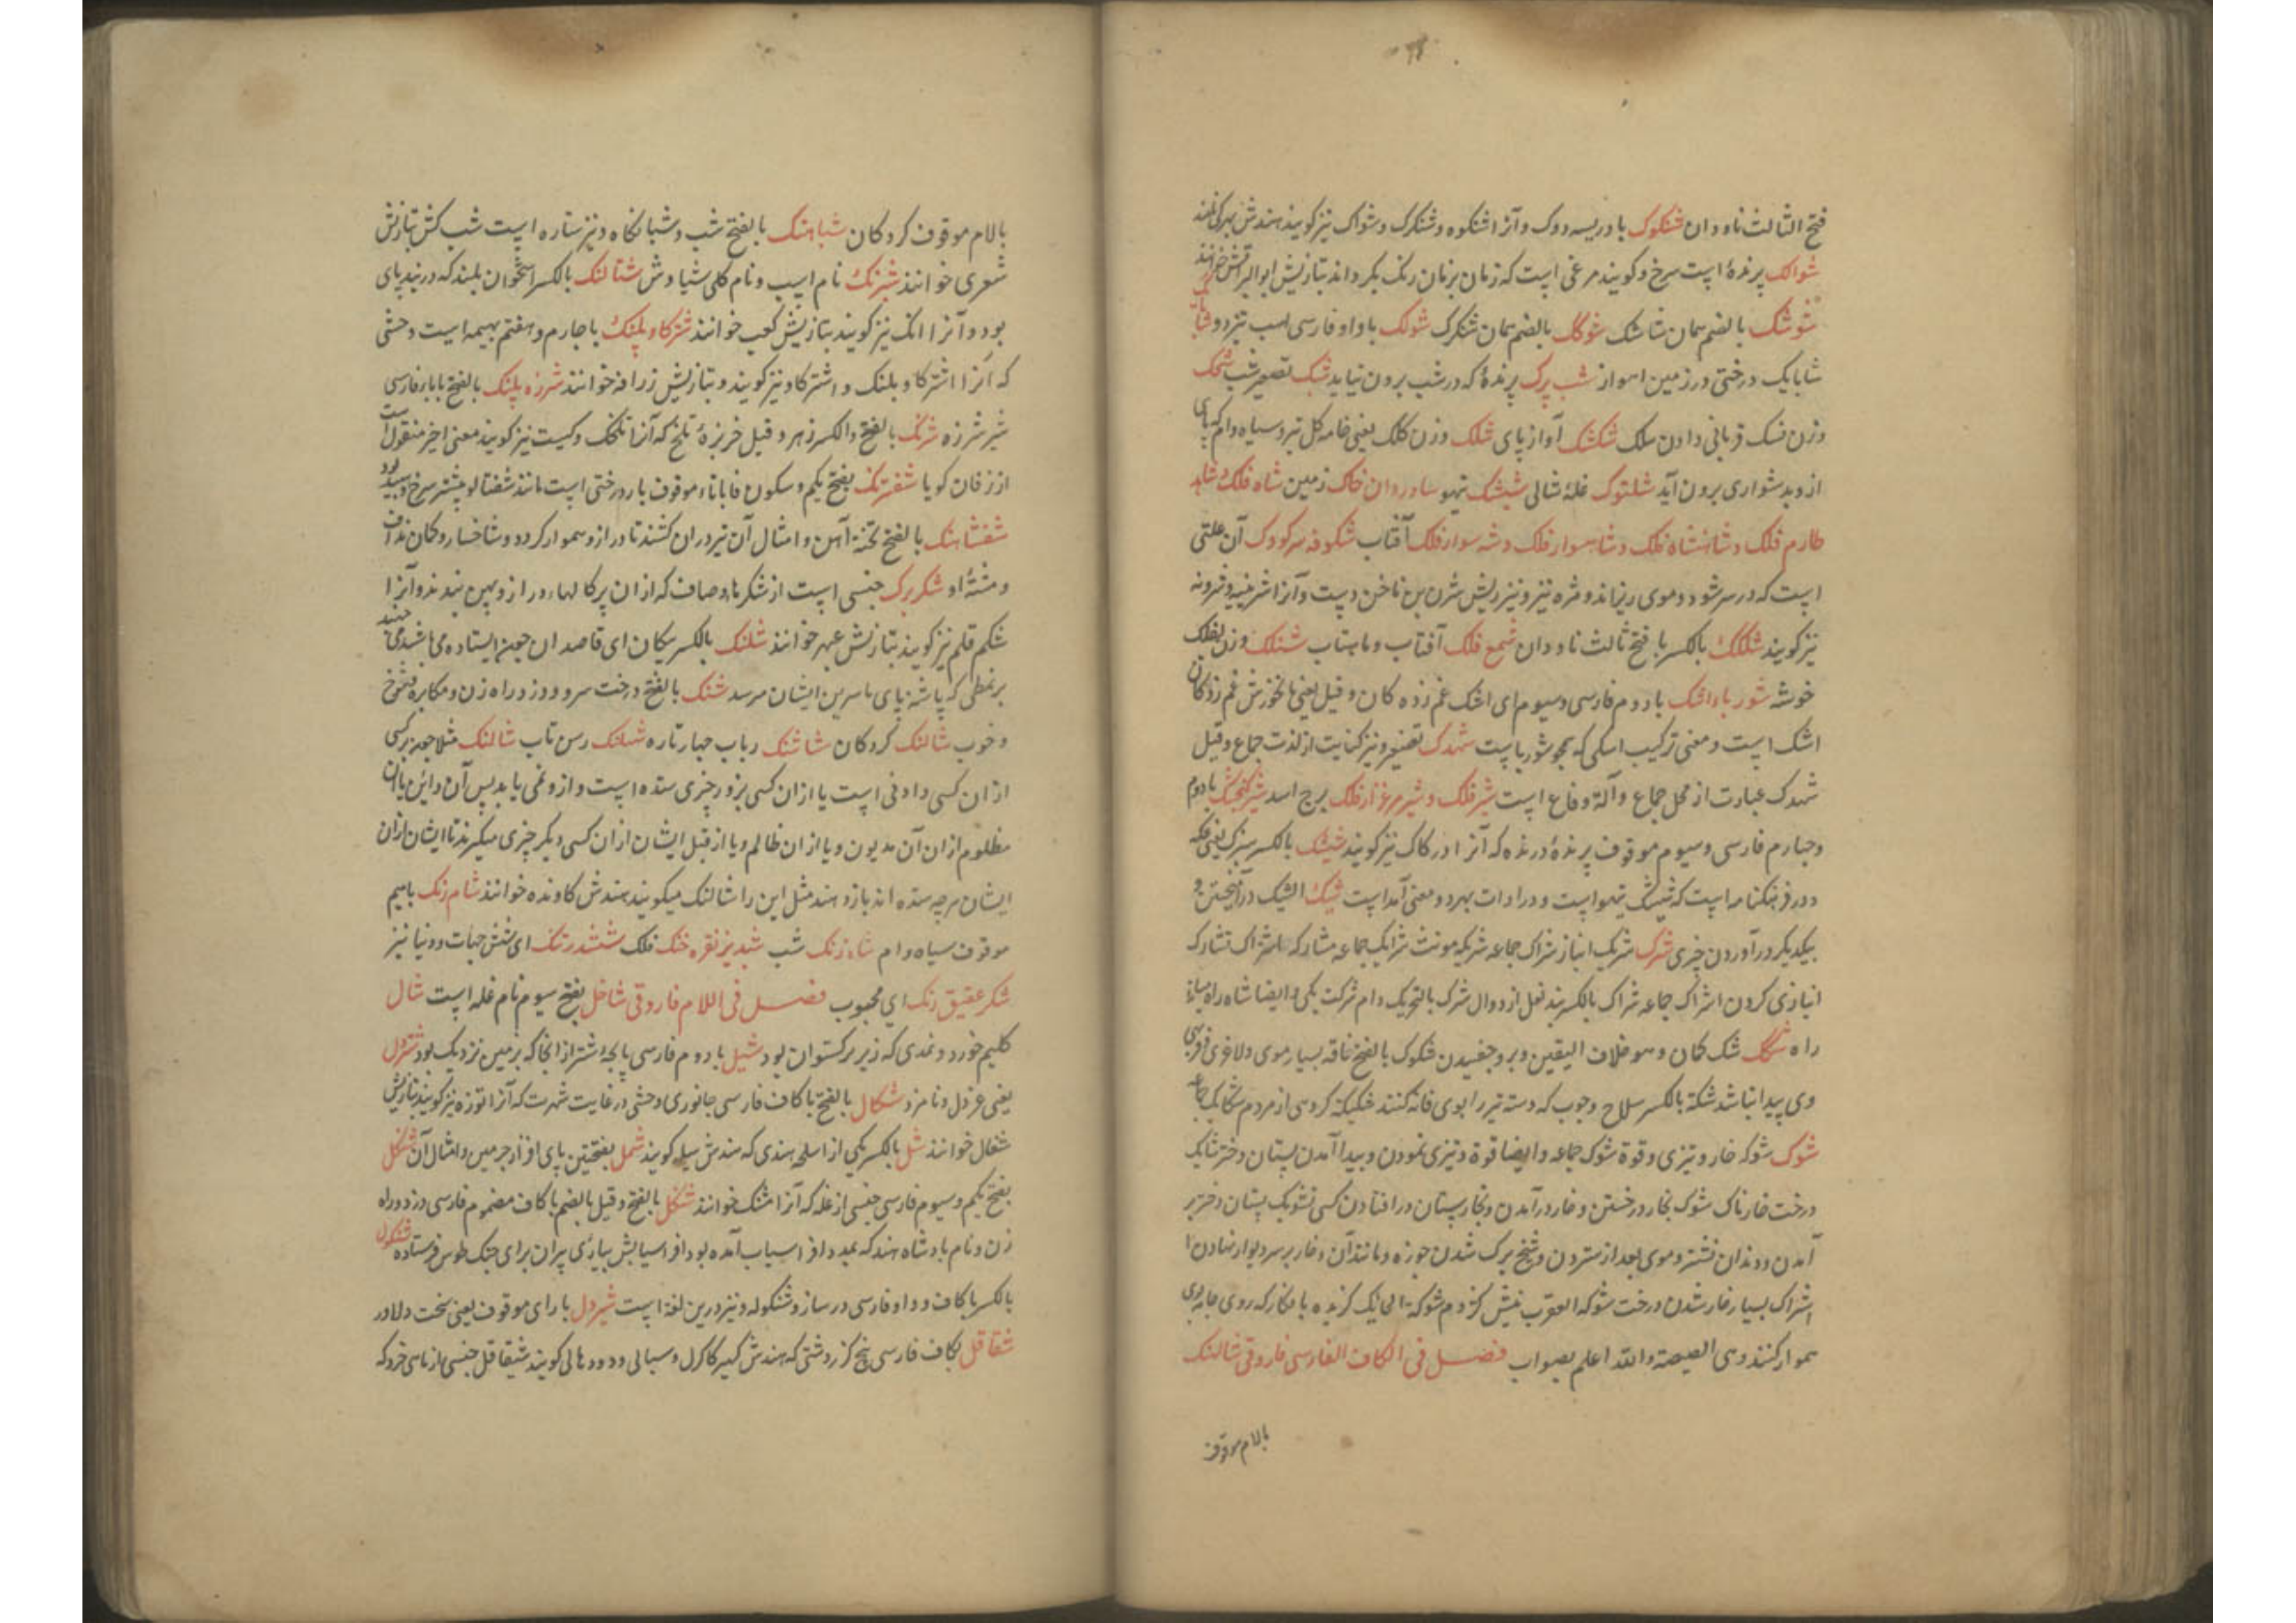 فتح الثالث ناودان شنکوک بادریسه دوک و آنرا شنکوه و شنکرک و شواک نیز کویند هندش
شوالک پرندهٔ است سرخ و کویند مرغی است که زمان بزمان رنک بکرداند بتازیش ابو البراقش خوانند
شوشک بالضم همان شاشک شوکک بالضم همان شنکرک شولک با واو فارسی اسب تیزرو
شابابک درختی در زمین اهواز شب پرک پرندهٔ که در شب برون نیاید شبک تصغیر شب
وزن نسک قربانی دادن شکشک آواز پای شلک وزن کلک یعنی خامه کل تیره و سیاه وام که پای
ازو بدشواری برون آید شلتوک غلهٔ شالی شیشک تیهو خاک زمین شاه فلک
طارم فلک و شاهنشاه فلک و شاهسوار فلک و شه سوار فلک آفتاب شکوفه سرکودک آن علتی
است که در سر شود و موی ریزاند و مژه نیز و نیز ریش شدن بن ناخن دست و آنرا
نیز کویند بالکسر با فتح ثالث ناودان شمع فلک آفتاب و ماهتاب شنلک وزن
خوشه شوربا و اشک با دوم فارسی و سیوم ای اشک غم زده کان و قیل یعنی نانخورش غم زدکان
اشک است و معنی ترکیب اسکی که همچو شورباست شهدک تصغیر و نیز کنایت از لذت جماع و قیل
شهدک عبارت از محل جماع و آلة وقاع است شیر فلک و شیر مرغزار فلک برج اسد شیرکنجشک با دوم
و چهارم فارسی و سیوم موقوف پرندهٔ درنده که آنرا ورکاک نیز کویند شیشک بالکسر
و در فرهنکنامه است که شیشک تیهو است و در ادات بهر دو معنی آمد است شبک الشبک درآمیختن و
بیکدیکر درآوردن چیزی شرک شریک انباز شراک جماعه شریکه مونث شرایک جماعه مشارکه اشتراک تشارک
انبازی کردن اشراک جماعه شراک بالکسر بند نعل از دوال شرک بالتحریک دام شرکت یکی و ایضا شاه راه میانه
راه شک شک کمان و هو خلاف الیقین و بر و جفسیدن شکوک بالفتح ناقه بسیار موی و لاغری و فربهی
وی پیدا نباشد شکة بالکسر سلاح و چوب که دسته تبر را بوی فانه کنند شکیکة کروهی از مردم شکایک جماعه
شوک شوکه خار و تیزی و قوة شوک جماعه و ایضا قوة و تیزی نمودن و پیدا آمدن پستان دختر شایک
درخت خارناک شوک بخار در خستن و خار درآمدن و بخارستان در افتادن کسی تشویک پستان دختر بر
آمدن و دندان نشتر و موی بعد از ستردن و شیخ برک شدن جوزه و مانند آن و خار بر سر دیوار نهادن
اشواک بسیار خار شدن درخت شوکة العقرب نیش کژدم شوکة الحایک
هموار کنند وهی الصیصة والله اعلم بصواب فصل فی الکاف الفارسی فاروقی شالنک
بالام موقوف
بالام موقوف کردکان شباهنک بالفتح شب و شبانکاه و نیز ستاره است شب کش بتازیش
شعری خوانند شبرنک نام اسپ و نام کلی سیاوش شتالنک بالکسر استخوان بلند که در بند پای
بود و آنرا انک نیز کویند بتازیش کعب خوانند شترکاو پلنک با چارم و هفتم بهیمه است وحشی
که آنرا اشترکاو پلنک و اشترکاو نیز کویند و بتازیش زرافه خوانند شرزه پلنک بالفتح با باء فارسی
شیر شرزه شرنک بالفتح والکسر زهر و قیل خربزهٔ تلخ که آنرا تلخک و کبست نیز کویند معنی اخیر منقول است
از زفان کویا شفترنک بفتح یکم و سکون فا با تاء موقوف بار درختی است مانند شفتالو بیشتر سرخ و سپید بود
شفشاهنک بالفتح تختهٔ آهن و امثال آن تیر در آن کشند تا دراز و هموار کردد و شاخسار و کمان نداف
و مشتهٔ او شکربرک جنسی است از شکرهاء صاف که از ان پرکالهاء دراز و پهن بندند و آنرا
شکم قلم نیز کویند بتازیش عبهر خوانند شلنک بالکسر پیکان ای قاصدان چون ایستاده می باشند می جهند
بر نمطی که پاشنه پای تا سرین ایشان میرسد شنک بالفتح درخت سرو و دزد و راه زن و مکابره و شوخ
و خوب شالنک کردکان شاشنک رباب چهار تاره شیلنک رسن تاب شالنک مثلا چون برکسی
از ان کسی دادنی است یا از ان کسی بزور چیزی ستده است و از وغمی یابد پس آن داین یا آن
مظلوم از ان آن مدیون و یا از ان ظالم و یا از قبل ایشان از ان کسی دیکر چیزی میکیرند تا ایشان از ان
ایشان هرچه ستده اند باز دهند مثل این را شالنک میکویند هندش کاونده خوانند شام رنک بامیم
موقوف سیاه وام شاه رنک شب شبدیز نقره خنک فلک ششدر تنک ای شش جهات و دنیا نیز
شکر عقیق رنک ای محبوب فصل فی اللام فاروقی شاخل بفتح سیوم نام غله است شال
کلیم خورد و نمدی که زیر برکستوان بود شپل با دوم فارسی پایچهٔ شتر از انجا که بزمین نزدیک بود شتردل
یعنی غردل و نامرد شکال بالفتح با کاف فارسی جانوری وحشی در غایت شهرت که آنرا توره نیز کویند بتازیش
شغال خوانند شل بالکسر یکی از اسلحه هندی که هندش سیل کویند شمل بفتحتین پای افزار چرمین و امثال آن شنکل
بفتح یکم و سیوم فارسی جنسی از غله که آنرا مشنک خوانند شنکل بالفتح و قیل بالضم با کاف مضموم فارسی دزد و راه
زن و نام بادشاه هند که بمدد افراسیاب آمده بود افراسیابش بیاری پیران برای جنک طوس فرستاده شنکول
بالکسر با کاف و واو فارسی در ساز و شنکوله و نیز درین لغة است شیردل با رای موقوف یعنی سخت دلاور
شقاقل بکاف فارسی بیخ کزر دشتی که هندش کویند شیقاقل جنسی از ماهی خرد که